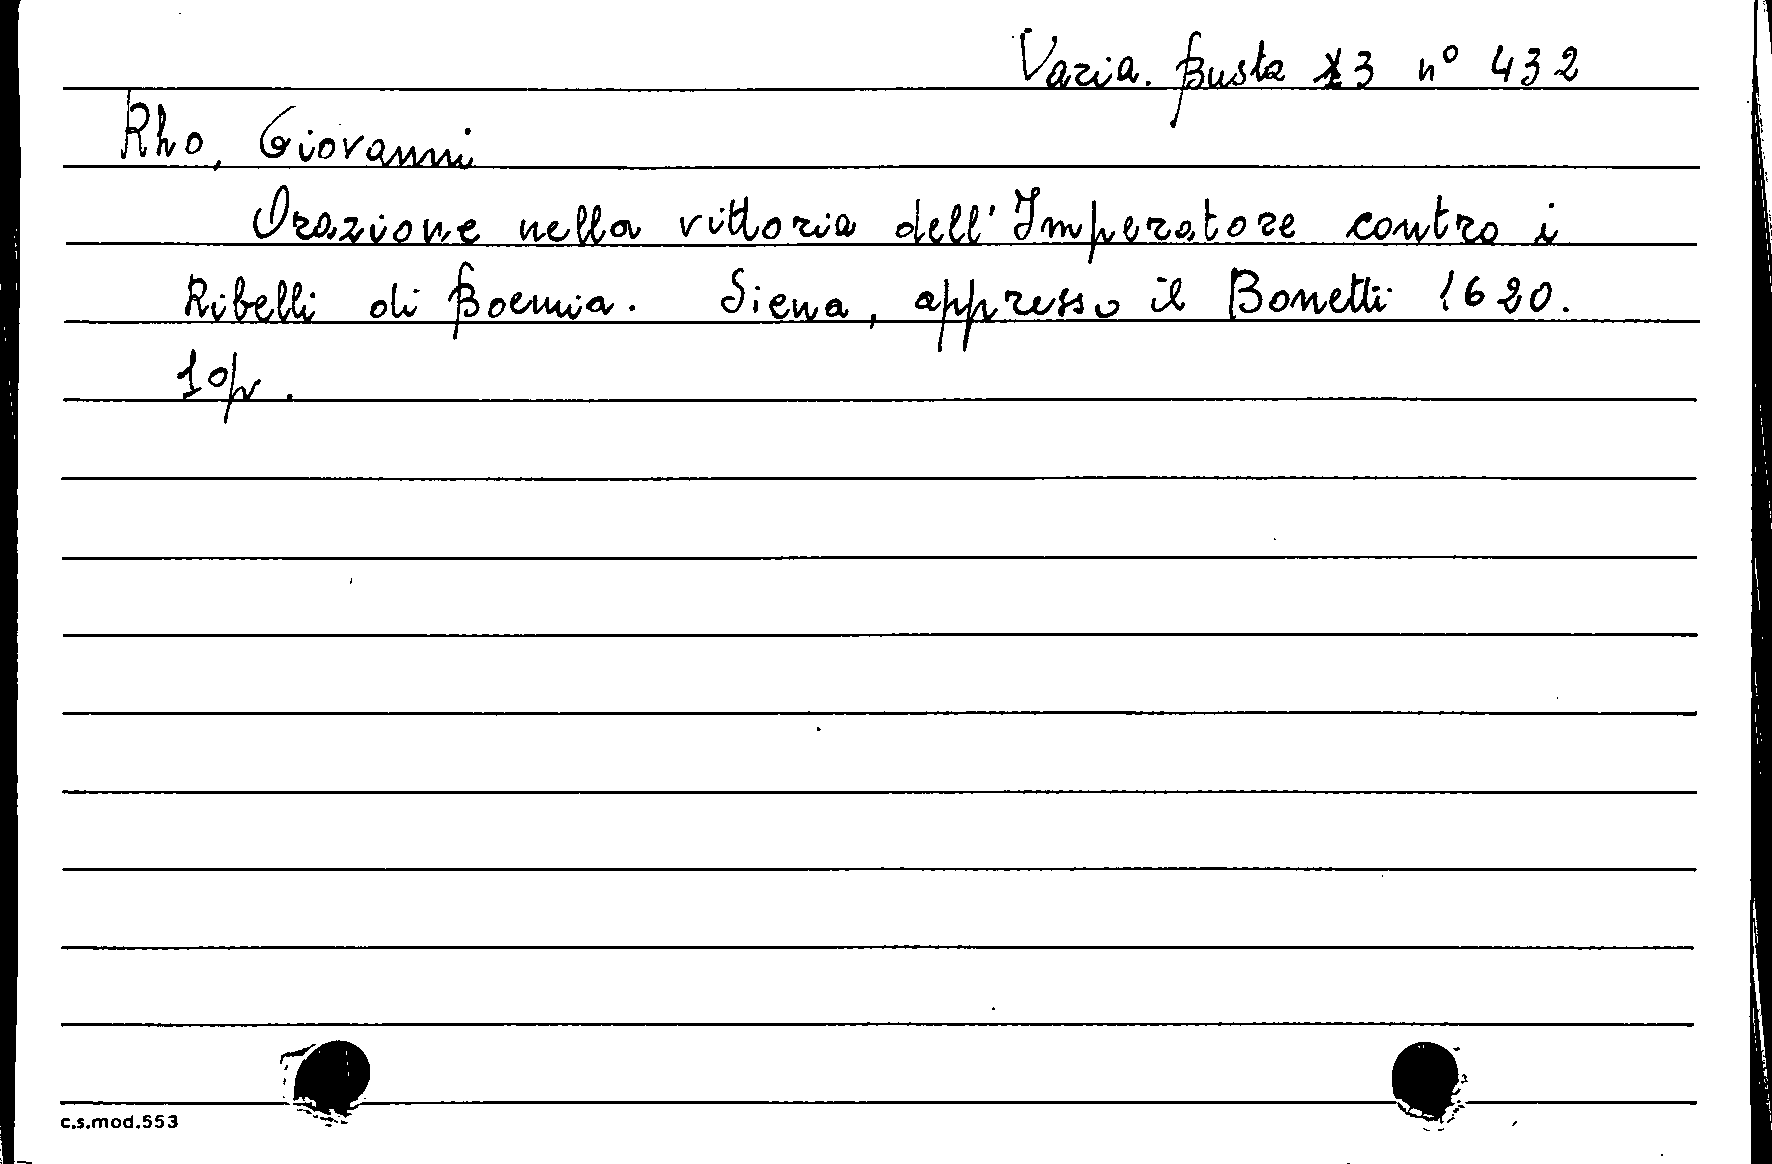 Varia. Busta 13 nº 432
Rho, Giovanni
Orazione nella vittoria dell'Imperatore contro i
Ribelli di Boemia. Siena, appresso il Bonetti 1620.
10p.
c.s.mod.553